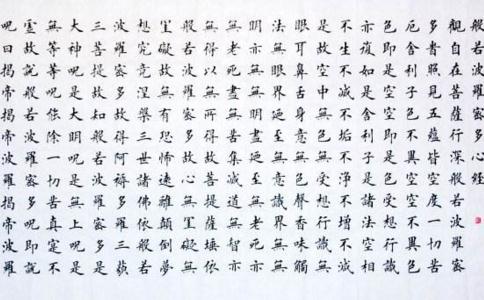 般若波羅蜜多心經
觀自在菩薩行深般若波羅蜜
多時照見五蘊皆空度一切苦
厄舍利子色不異空空不異色
色即是空空即是色受想行識
亦復如是舍利子是諸法空相
不生不滅不垢不淨不增不減
是故空中無色無受想行識無
眼耳鼻舌身意無色聲香味觸
法無眼界乃至無意識界無無
明亦無無明盡乃至無老死亦
無老死盡無苦集滅道無智亦
無得以無所得故菩提薩埵依
般若波羅蜜多故心無罣礙無
罣礙故無有恐怖遠離顛倒夢
想究竟涅槃三世諸佛依般若
波羅蜜多故得阿耨多羅三藐
三菩提故知般若波羅蜜多是
大神呪是大明呪是無上呪是
無等等呪能除一切苦真實不
虛故說般若波羅蜜多呪即說
呪曰揭帝揭帝波羅揭帝波羅